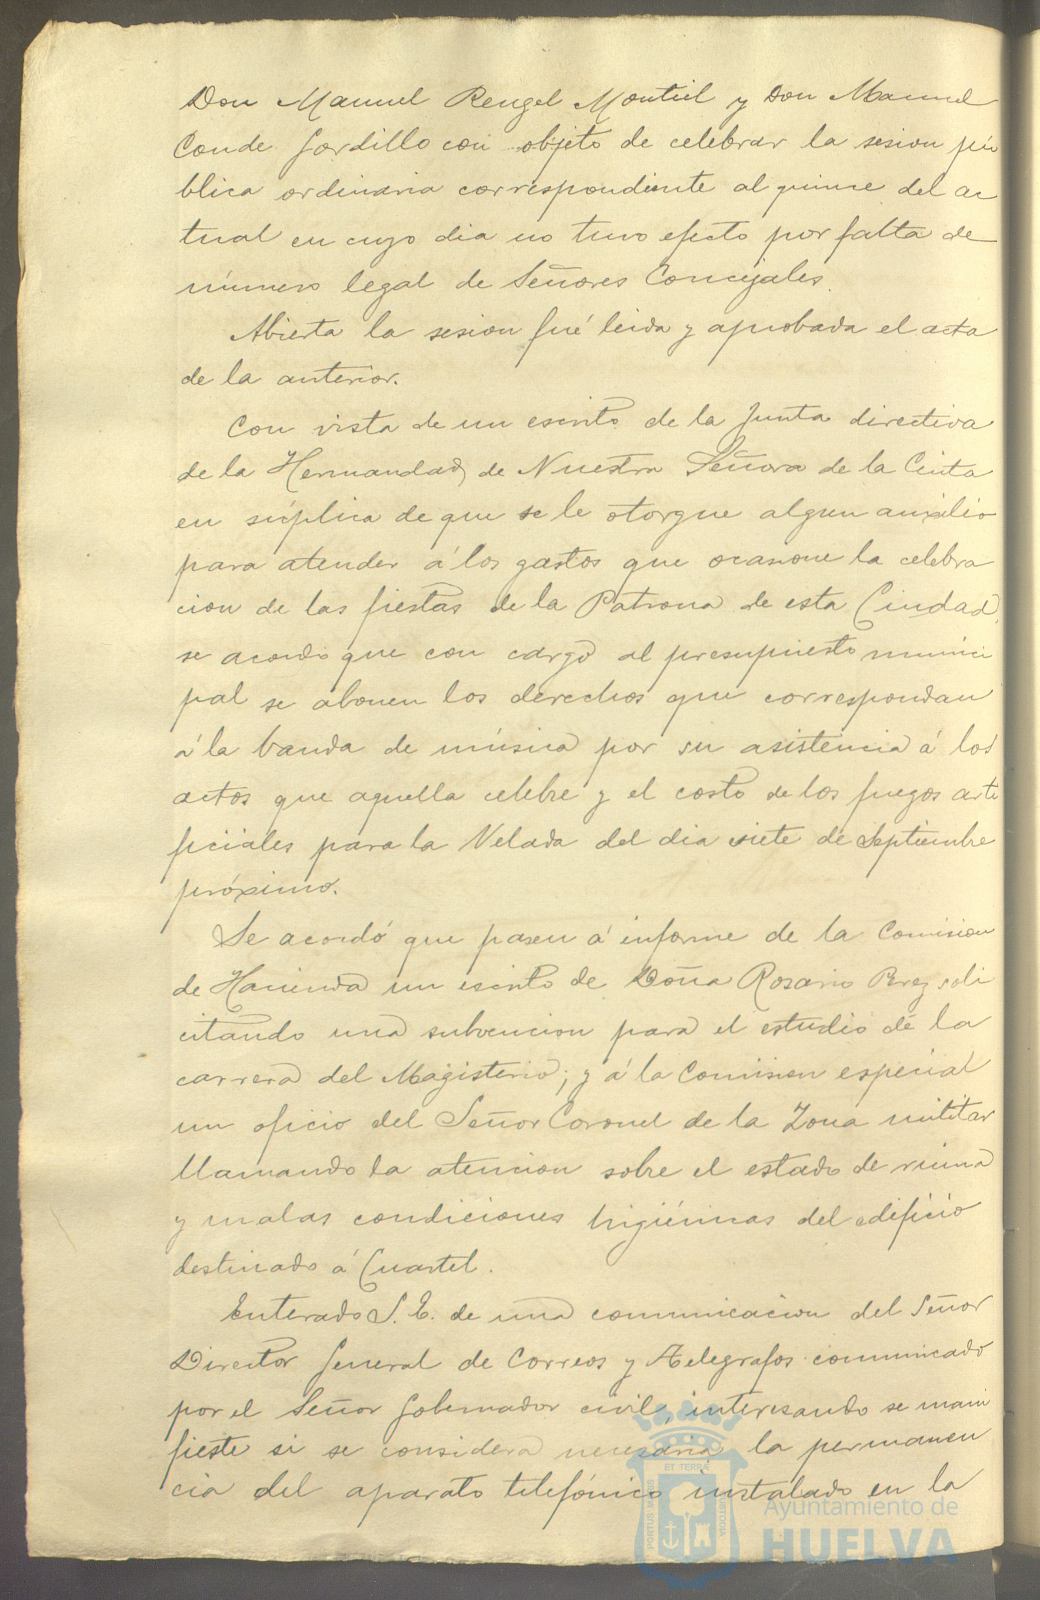 Don Manuel Rengel Montiel y Don Manuel
Conde Gordillo con objeto de celebrar la sesion pú
blica ordinaria correspondiente al quince del ac
tual en cuyo dia no tuvo efecto por falta de
número legal de Señores Concejales.
Abierta la sesion fué leida y aprobada el acta
de la anterior.
Con vista de un escrito de la Junta directiva
de la Hermandad de Nuestra Señora de la Cinta
en súplica de que se le otorgue algun auxilio
para atender á los gastos que ocasione la celebra
cion de las fiestas de la Patrona de esta Ciudad,
se acordó que con cargo al presupuesto munici
pal se abonen los derechos que correspondan
á la banda de música por su asistencia á los
actos que aquella celebre y el costo de los fuegos arti
ficiales para la Velada del dia siete de Septiembre
próximo.
Se acordó que pasen á informe de la Comision
de Hacienda un escrito de Doña Rosario Perez soli
citando una subvencion para el estudio de la
carrera del Magisterio; y á la Comision especial
un oficio del Señor Coronel de la Zona militar
llamando la atencion sobre el estado de ruina
y malas condiciones higiénicas del edificio
destinado á Cuartel.
Enterado S. E. de una comunicacion del Señor
Director General de Correos y Telegrafos comunicado
por el Señor Gobernador civil, interesando se mani
fieste si se considera necesaria la permanen
cia del aparato telefónico instalado en la
ET TERRÆ
PORTUS MARIS
CUSTODIA
Ayuntamiento de
HUELVA